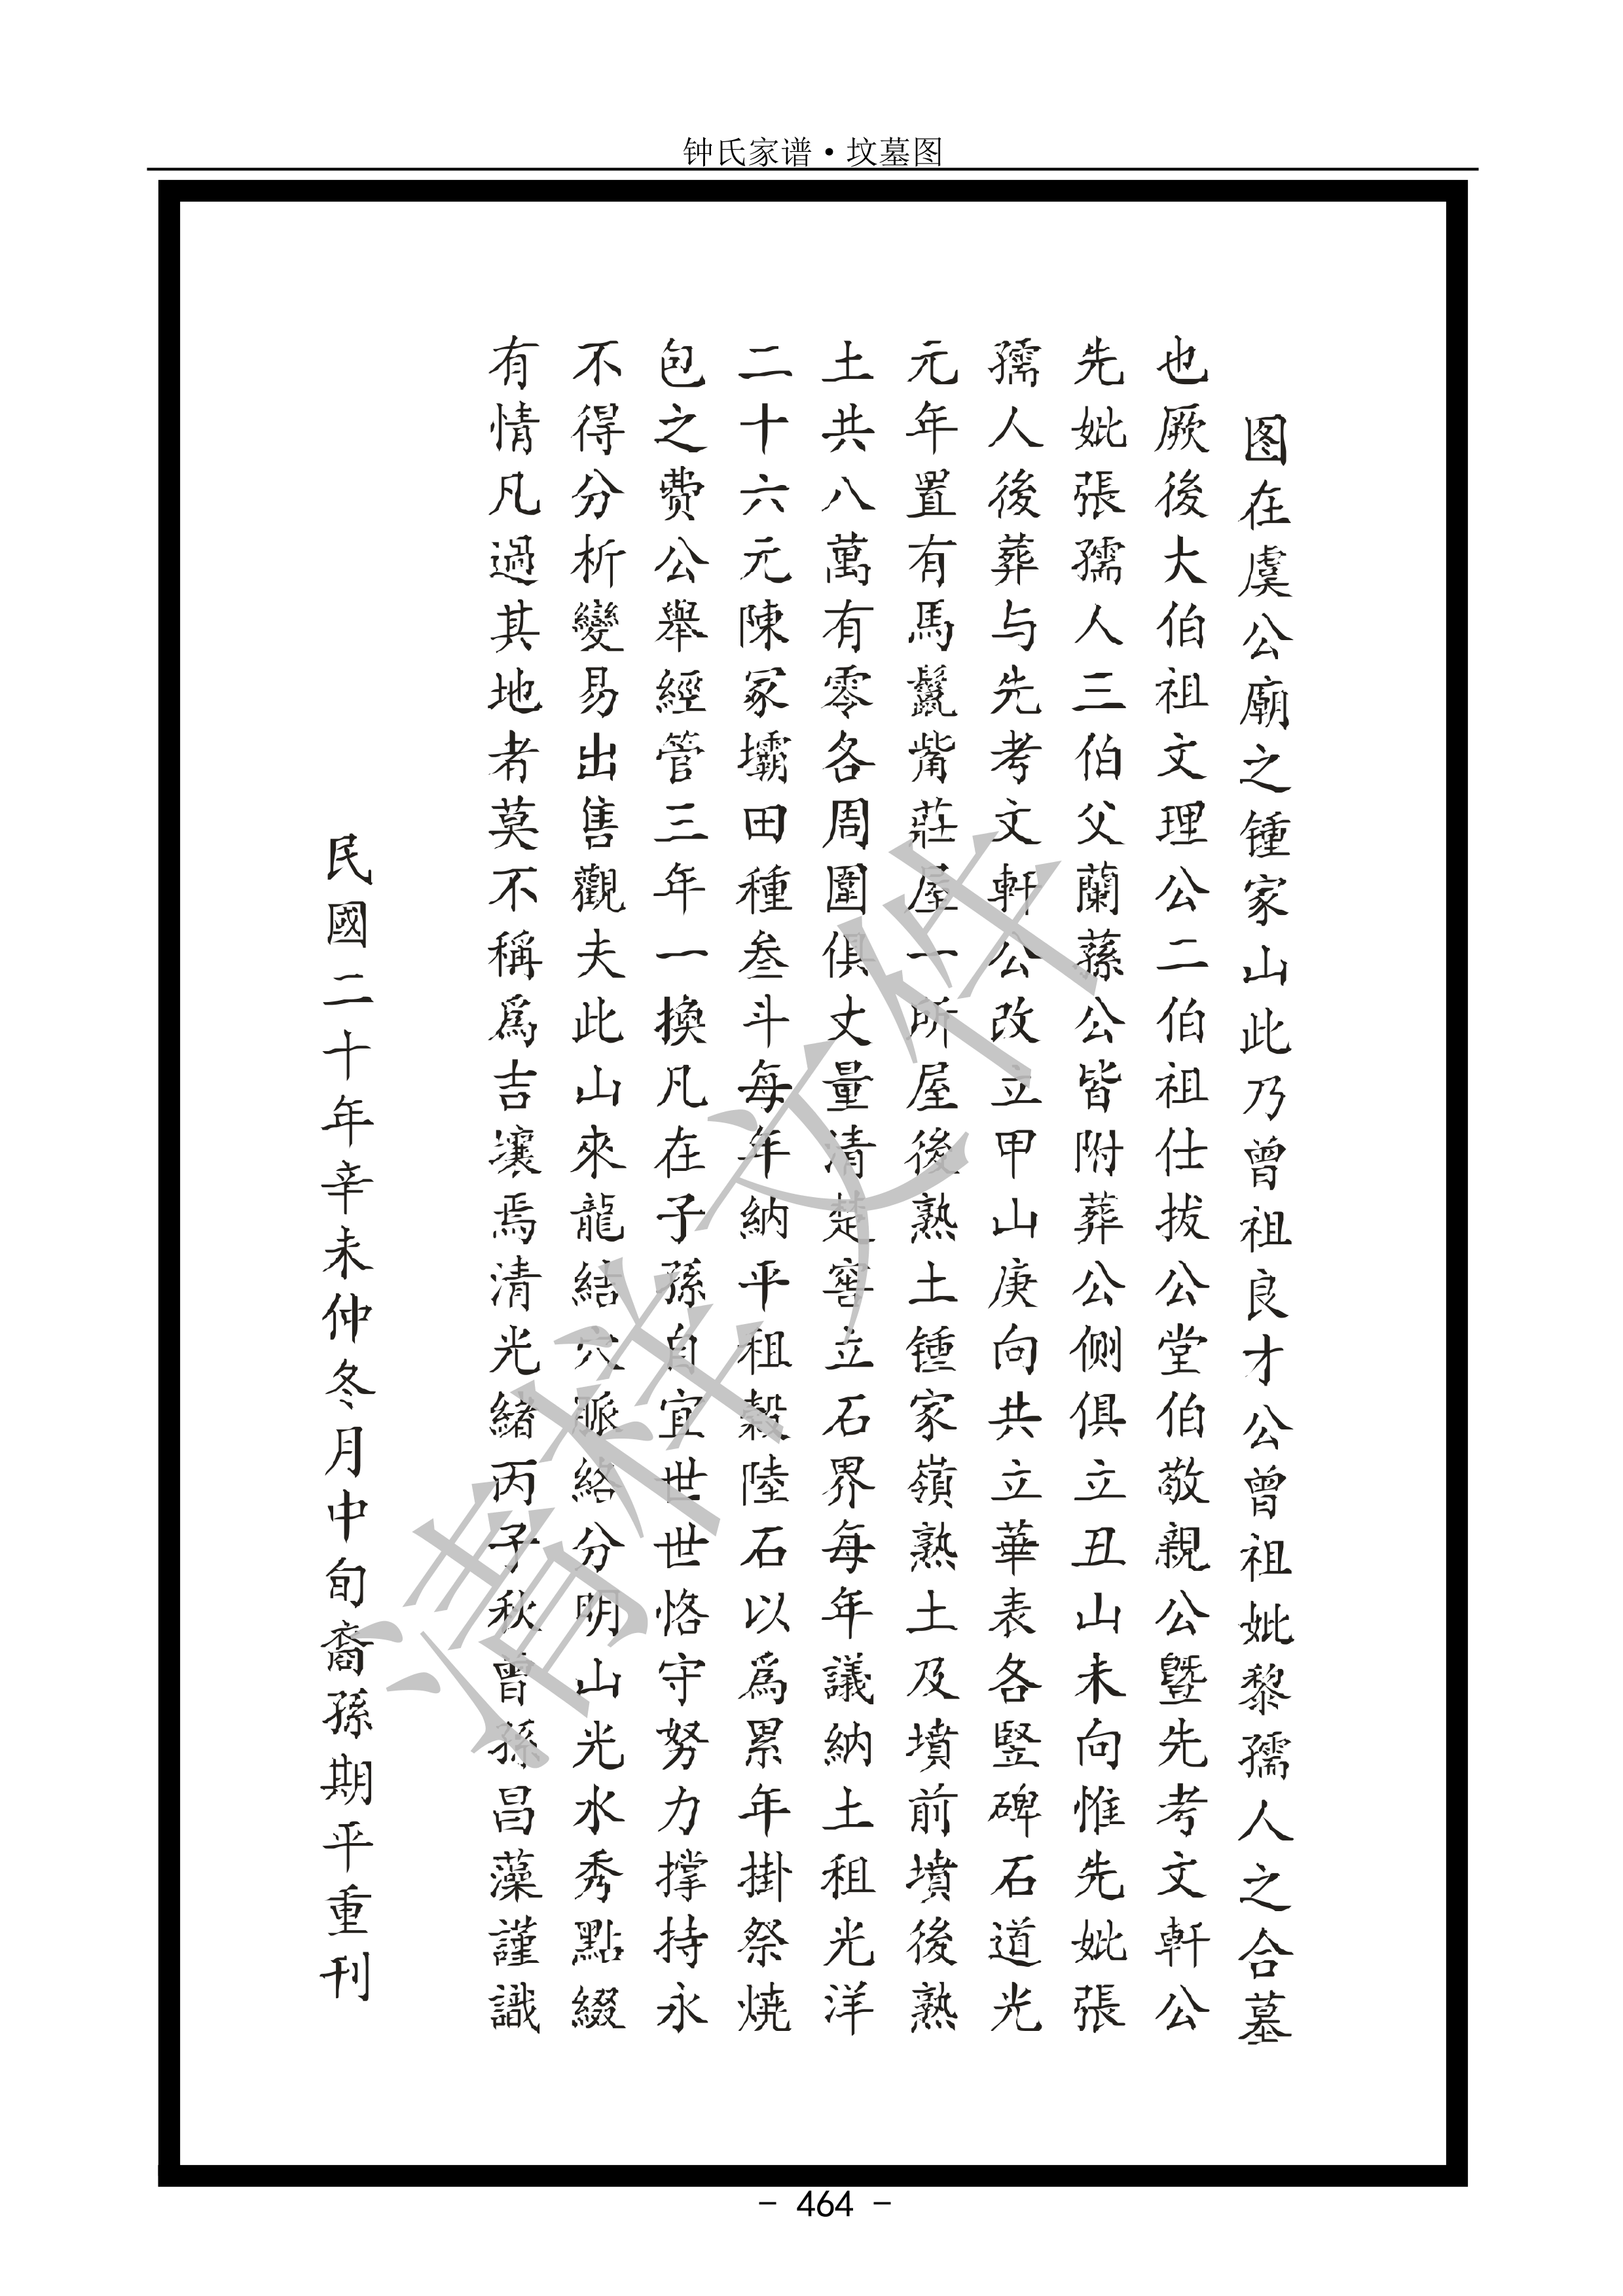 钟氏家谱·坟墓图
图在虞公廟之锺家山此乃曾祖良才公曾祖妣黎孺人之合墓
也厥後大伯祖文理公二伯祖仕拔公堂伯敬親公暨先考文軒公
先妣張孺人三伯父蘭蓀公皆附葬公侧俱立丑山未向惟先妣張
孺人後葬与先考文軒公改立甲山庚向共立華表各竪碑石道光
元年置有馬鬣觜莊屋一所屋後熟土锺家嶺熟土及墳前墳後熟
土共八萬有零各周圍俱丈量清楚窖立石界每年議納土租光洋
二十六元陳冢壩田種叁斗每年納平租穀陸石以爲累年掛祭燒
包之费公舉經管三年一換凡在子孫自宜世世恪守努力撑持永
不得分析變易出售觀夫此山來龍結穴脈絡分明山光水秀點綴
有情凡過其地者莫不稱爲吉壤焉清光緒丙子秋曾孫昌藻謹識
民國二十年辛未仲冬月中旬裔孫期平重刊
清样文件
- 464 -